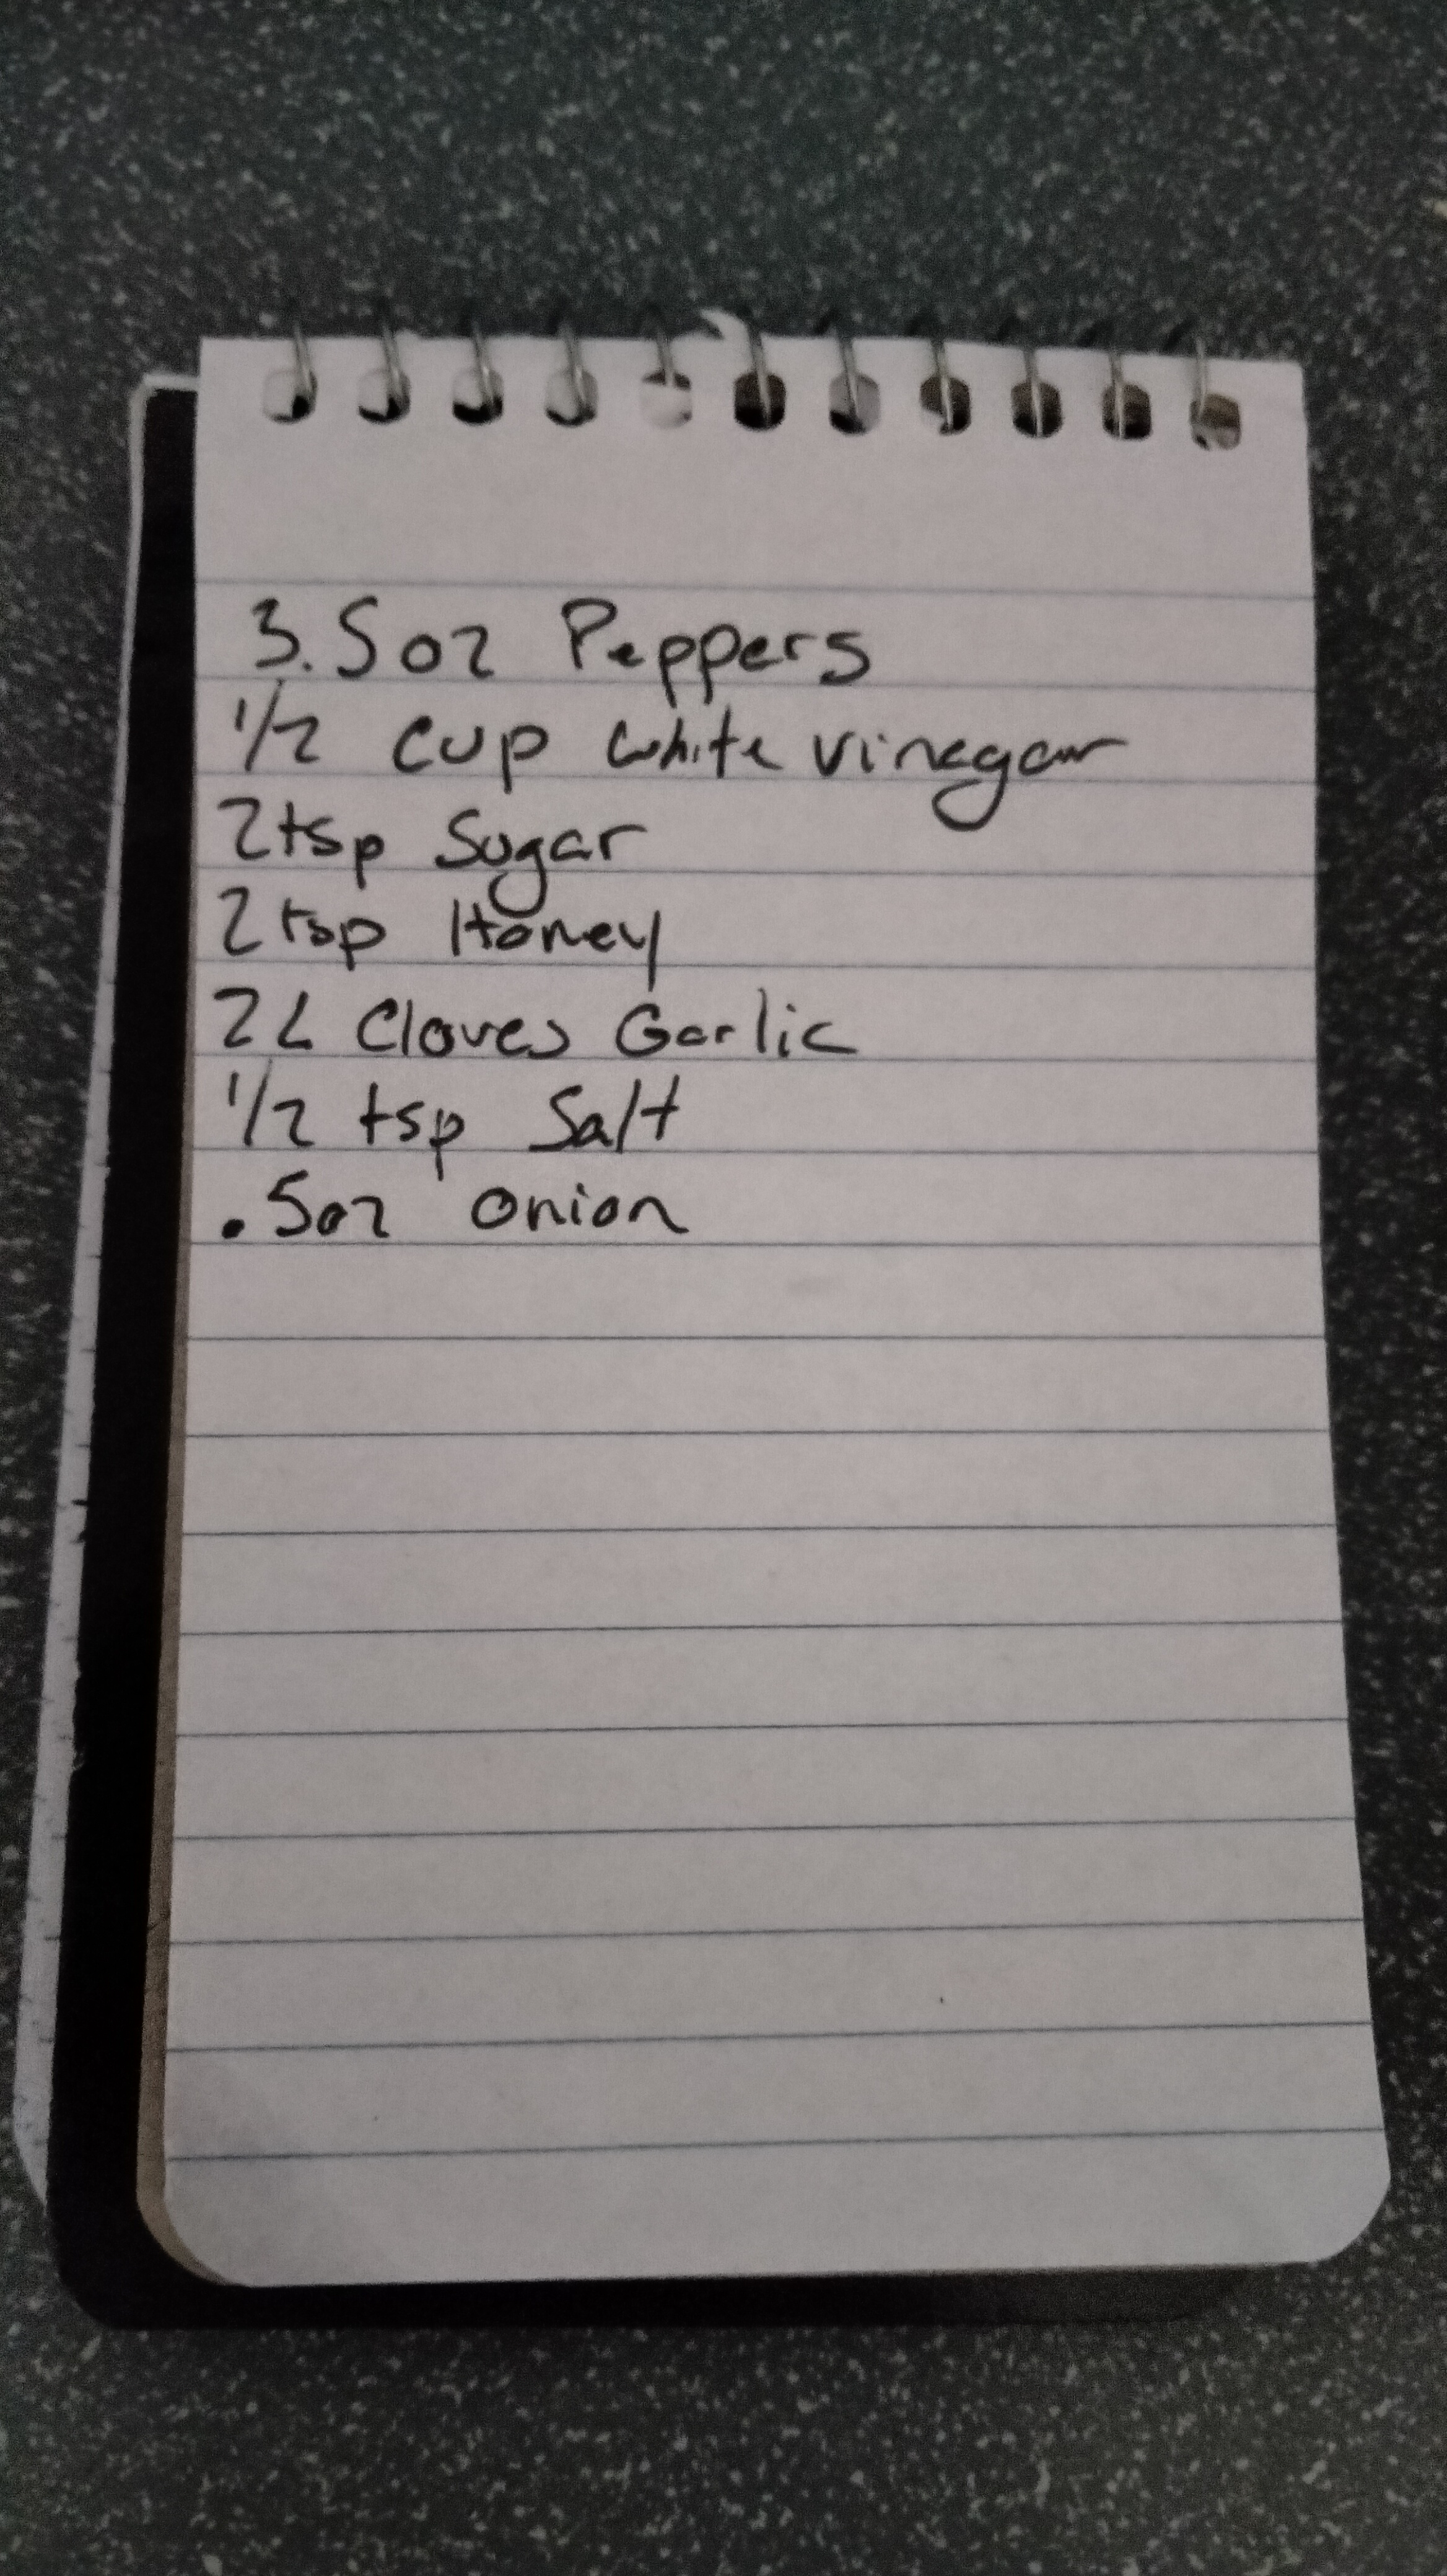 3.5oz Peppers
1/2 cup white vinegar
2tsp Sugar
2tsp Honey
2L Cloves Garlic
1/2 tsp Salt
.5oz onion